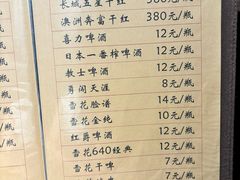 长城五星干红
澳洲奔富干红 380元/瓶
喜力啤酒 12元/瓶
日本一番榨啤酒 12元/瓶
教士啤酒 12元/瓶
勇闯天涯 8元/瓶
雪花脸谱 14元/瓶
雪花金纯 10元/瓶
红爵啤酒 12元/瓶
雪花640经典 12元/瓶
雪花干啤 7元/瓶
7元/瓶